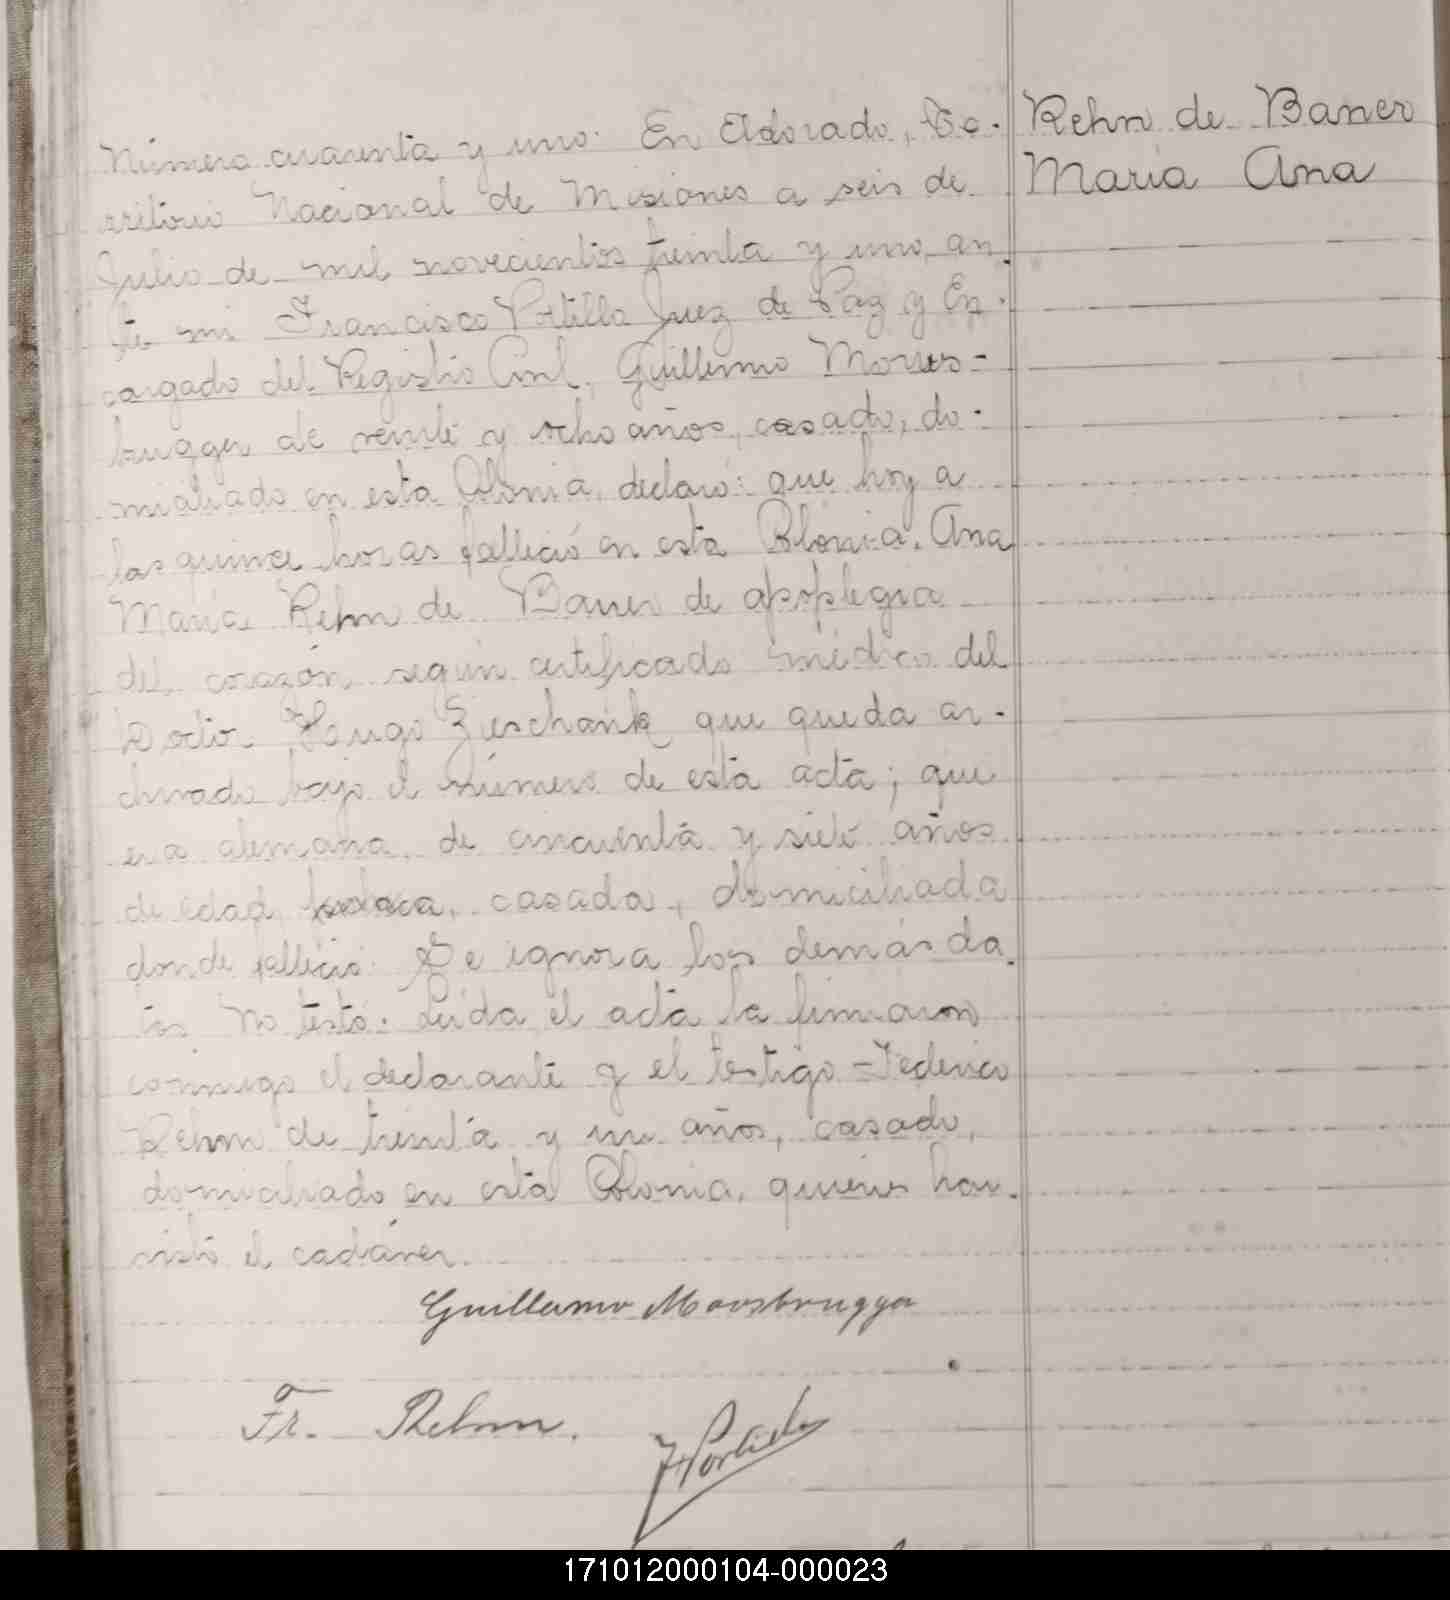 Número cuarenta y uno. En Eldorado, Te-
rritorio Nacional de Misiones a seis de
Julio de mil novecientos treinta y uno, an-
te mi Francisco Portillo Juez de Paz y En-
cargado del Registro Civil, Guillermo Moors-
brugger de veinte y ocho años, casado, do-
miciliado en esta Colonia, declaró: que hoy a
las quince horas falleció en esta Colonia, Ana
María Rehm de Bauer de apoplegia
del corazón, según certificado médico del
Doctor Hugo Zieschank que queda ar-
chivado bajo el número de esta acta; que
era alemana, de cincuenta y siete años
de edad, casada, domiciliada
donde falleció. Se ignora los demás da-
tos. No testó. Leida el acta la firmaron
conmigo el declarante y el testigo -Federico
Rehm de treinta y un años, casado,
domiciliado en esta Colonia, quienes han
visto el cadáver.
Guillermo Moosbrugger
Fr. Rehm.
F Portillo
Rehm de Bauer
María Ana
171012000104-000023